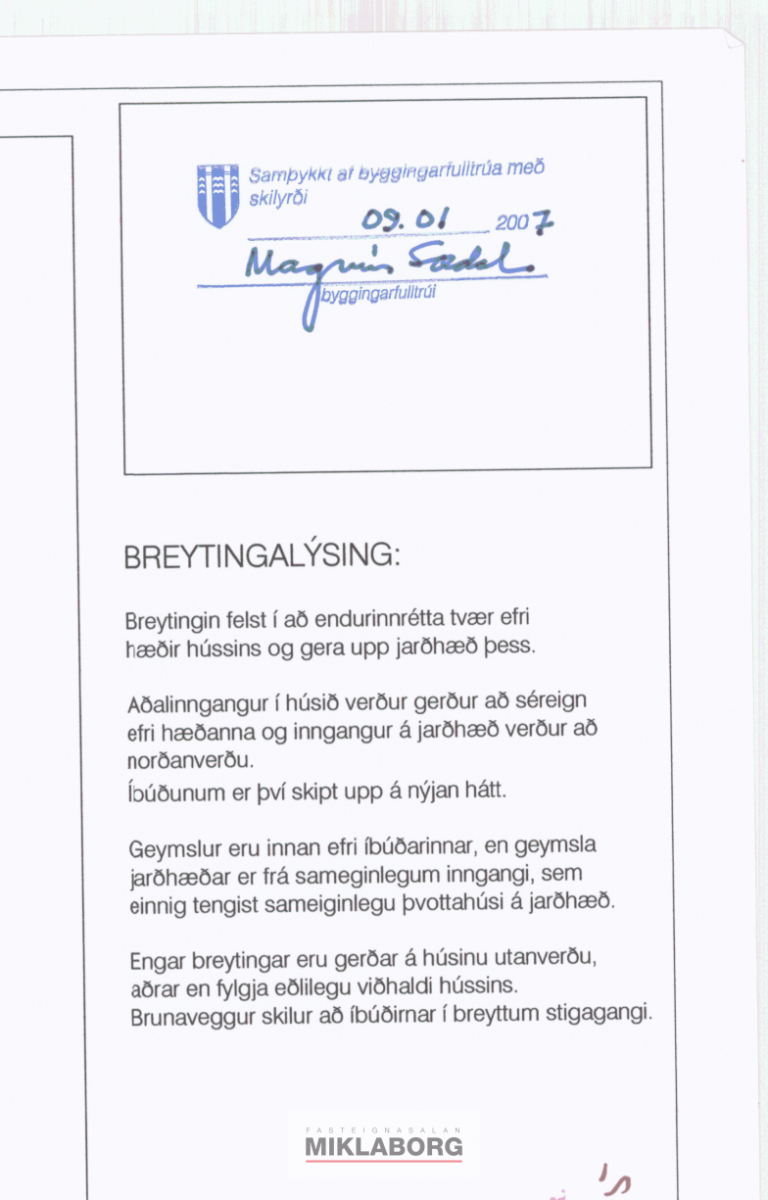 Samþykkt af byggingarfulltrúa með
skilyrði
09.01 2007
Magnús Sædal
byggingarfulltrúi
BREYTINGALÝSING:
Breytingin felst í að endurinnrétta tvær efri
hæðir hússins og gera upp jarðhæð þess.
Aðalinngangur í húsið verður gerður að séreign
efri hæðanna og inngangur á jarðhæð verður að
norðanverðu.
Íbúðunum er því skipt upp á nýjan hátt.
Geymslur eru innan efri íbúðarinnar, en geymsla
jarðhæðar er frá sameginlegum inngangi, sem
einnig tengist sameiginlegu þvottahúsi á jarðhæð.
Engar breytingar eru gerðar á húsinu utanverðu,
aðrar en fylgja eðlilegu viðhaldi hússins.
Brunaveggur skilur að íbúðirnar í breyttum stigagangi.
FASTEIGNASALAN
MIKLABORG